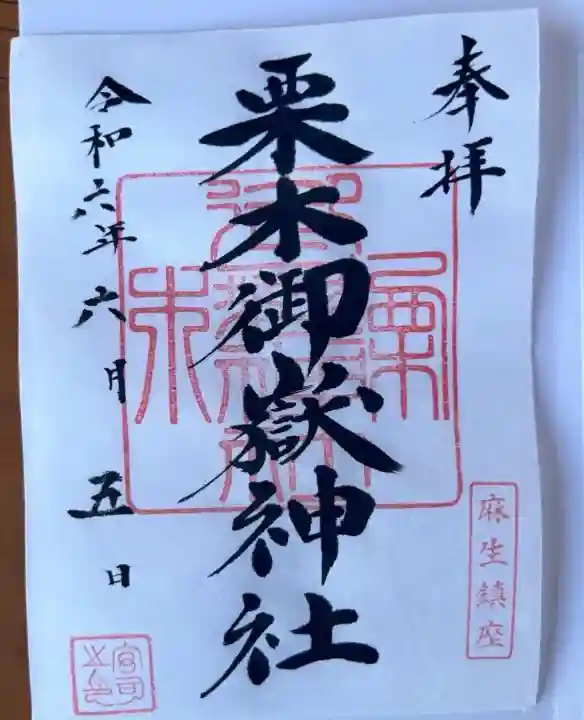 奉拝
麻生鎮座
栗木御嶽神社
令和六年六月五日